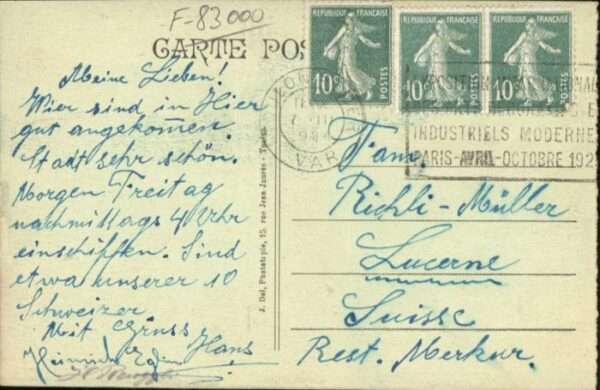 F-83000
CARTE POS
REPUBLIQUE FRANÇAISE
10c POSTES
REPUBLIQUE FRANÇAISE
10c POSTES
REPUBLIQUE FRANÇAISE
10c POSTES
VAR
INDUSTRIELS MODERNE
PARIS-AVRIL-OCTOBRE 192
Meine Lieben!
Wier sind in Hier
gut angekommen.
Stadt sehr schön.
Morgen Freitag
nachmittags 4 Uhr
einschiffen. Sind
etwa unserer 10
Schweizer.
Mit Gruss
Hans
J. Dol, Phototypie, 15, rue Jean Jaurès - Toulon
Fam.
Richli-Müller
Lucerne
Suisse
Rest. Merkur.